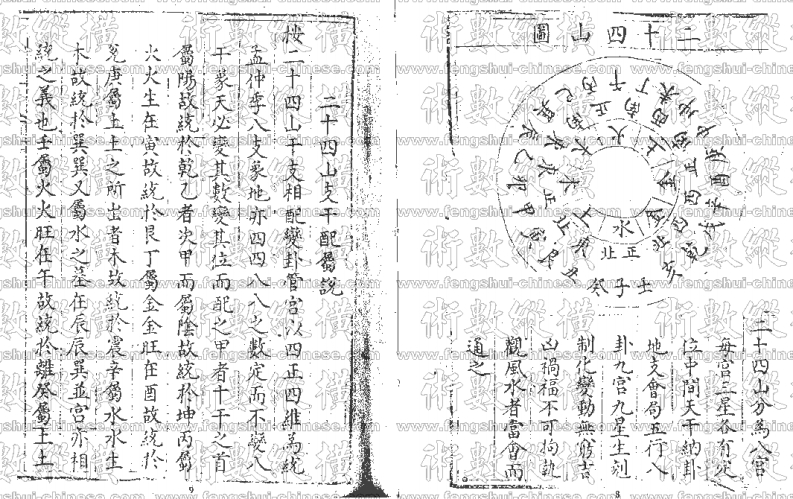 二十四山圖
午
丁
未
坤
庚
酉
辛
戌
乾
亥
壬
子
癸
丑
艮
寅
甲
卯
乙
辰
巽
巳
丙
正南
火
正北
水
二十四山分為八宮
每宮三星各有定
位中間天干納卦
地支會局五行八
卦九宮九星生剋
制化變動無窮吉
凶禍福不可拘執
觀風水者當會而
通之
二十四山支干配屬說
按二十四山干支相配變卦管宮以四正四維為統
孟仲季八支象地亦四四八八之數定而不變八
干象天必變其數變其位而配之甲者十干之首
屬陽故統於乾乙者次甲而屬陰故統於坤丙屬
火火生在寅故統於艮丁屬金金旺在酉故統於
兌庚屬土土之所出者木故統於震辛屬水水生
木故統於巽巽又屬水之墓在辰辰巽並宮亦相
統之義也壬屬火火旺在午故統於離癸屬土土
術數縱橫
www.fengshui-chinese.com